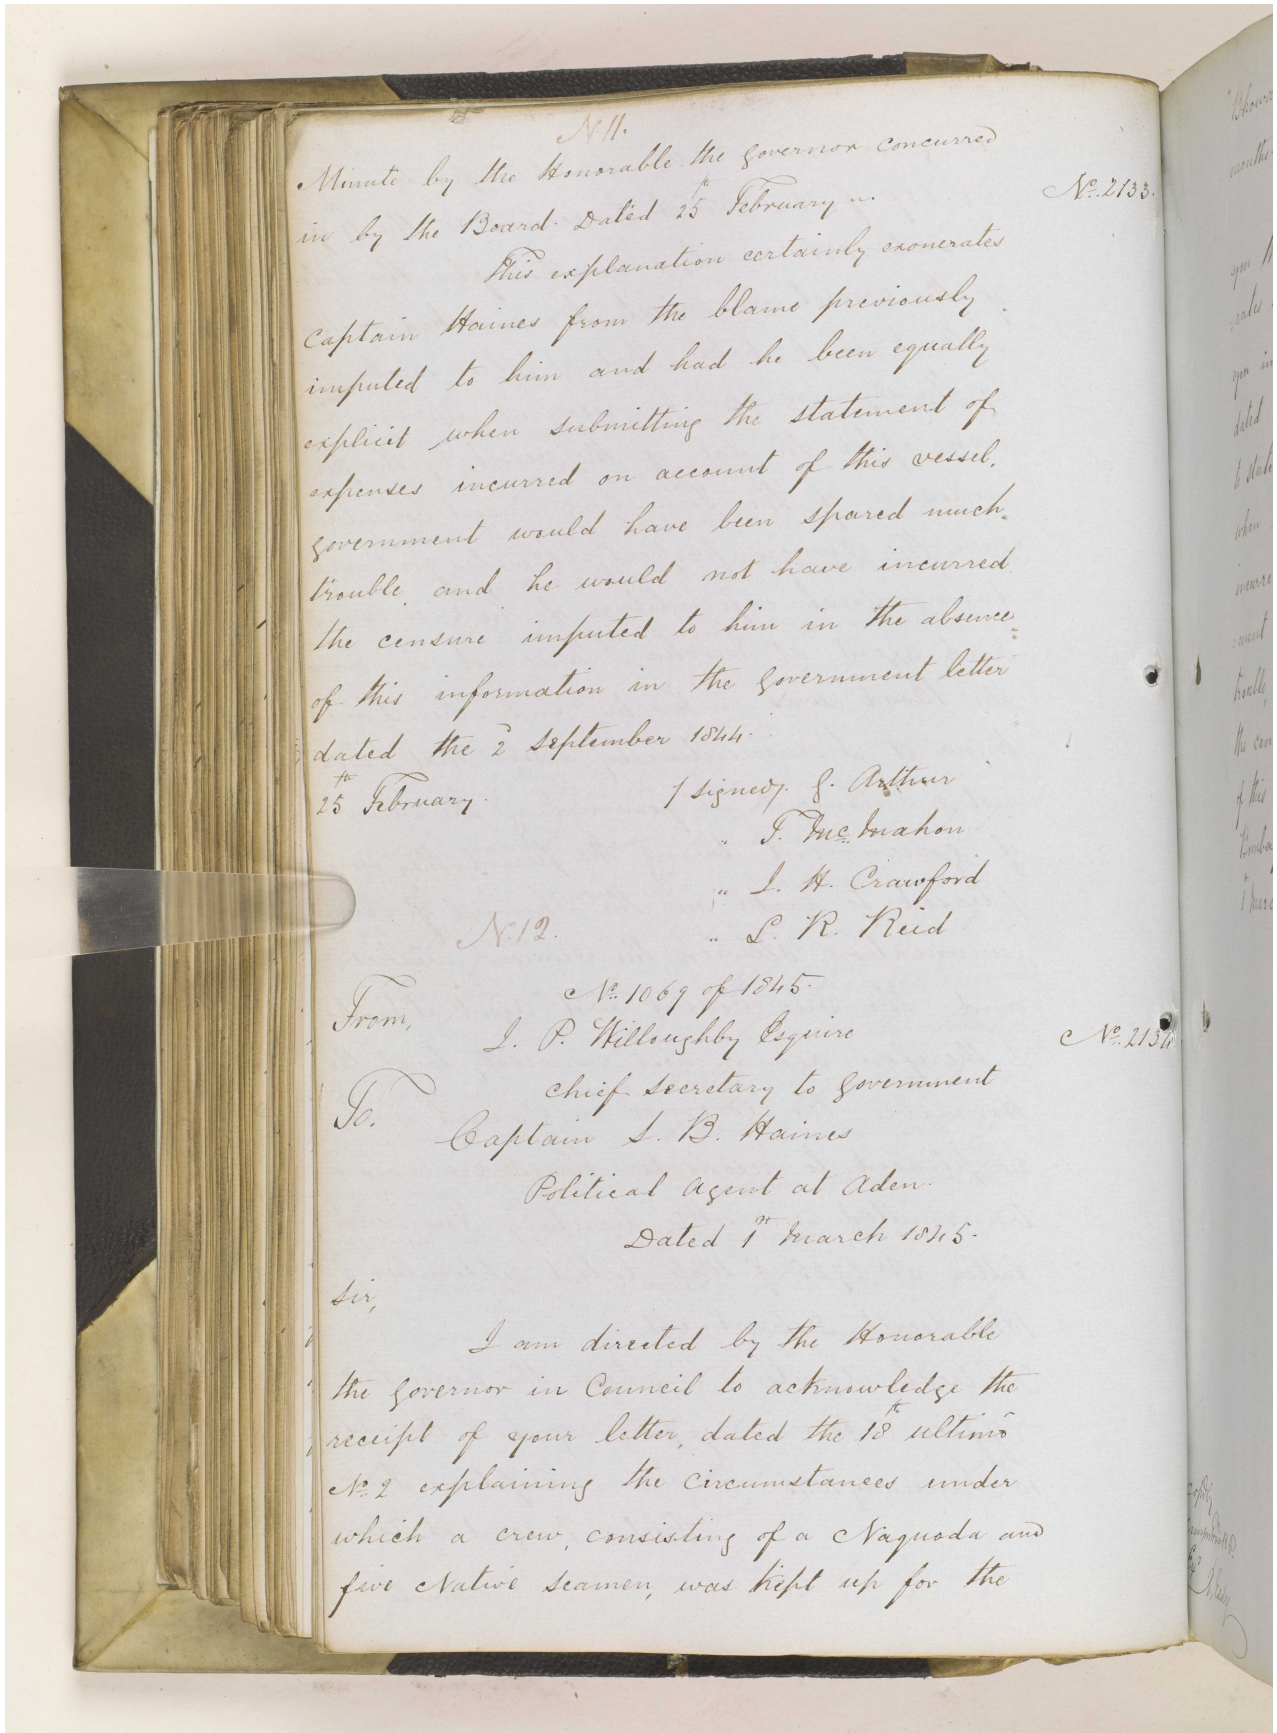 N.11.
Minute by the Honorable the Governor concurred
No. 2133.
in by the Board. Dated 25th February
This explanation certainly exonerates
Captain Haines from the blame previously
imputed to him and had he been equally
explicit when submitting the statement of
expenses incurred on account of this vessel,
Government would have been spared much
trouble, and he would not have incurred
the censure imputed to him in the absence
of this information in the Government letter
dated the 2d September 1844.
25th February.
/signed/. G. Arthur
" T. McMahon
" J. H. Crawford
" L. R. Reid
N.12.
No. 1069 of 1845.
From,
J. P. Willoughby Esquire
No. 2134
Chief Secretary to Government
To.
Captain S. B. Haines
Political Agent at Aden.
Dated 1st March 1845.
Sir,
I am directed by the Honorable
the Governor in Council to acknowledge the
receipt of your letter, dated the 18th ultimo
No. 2 explaining the circumstances under
which a crew, consisting of a Naquoda and
five Native Seamen, was kept up for the